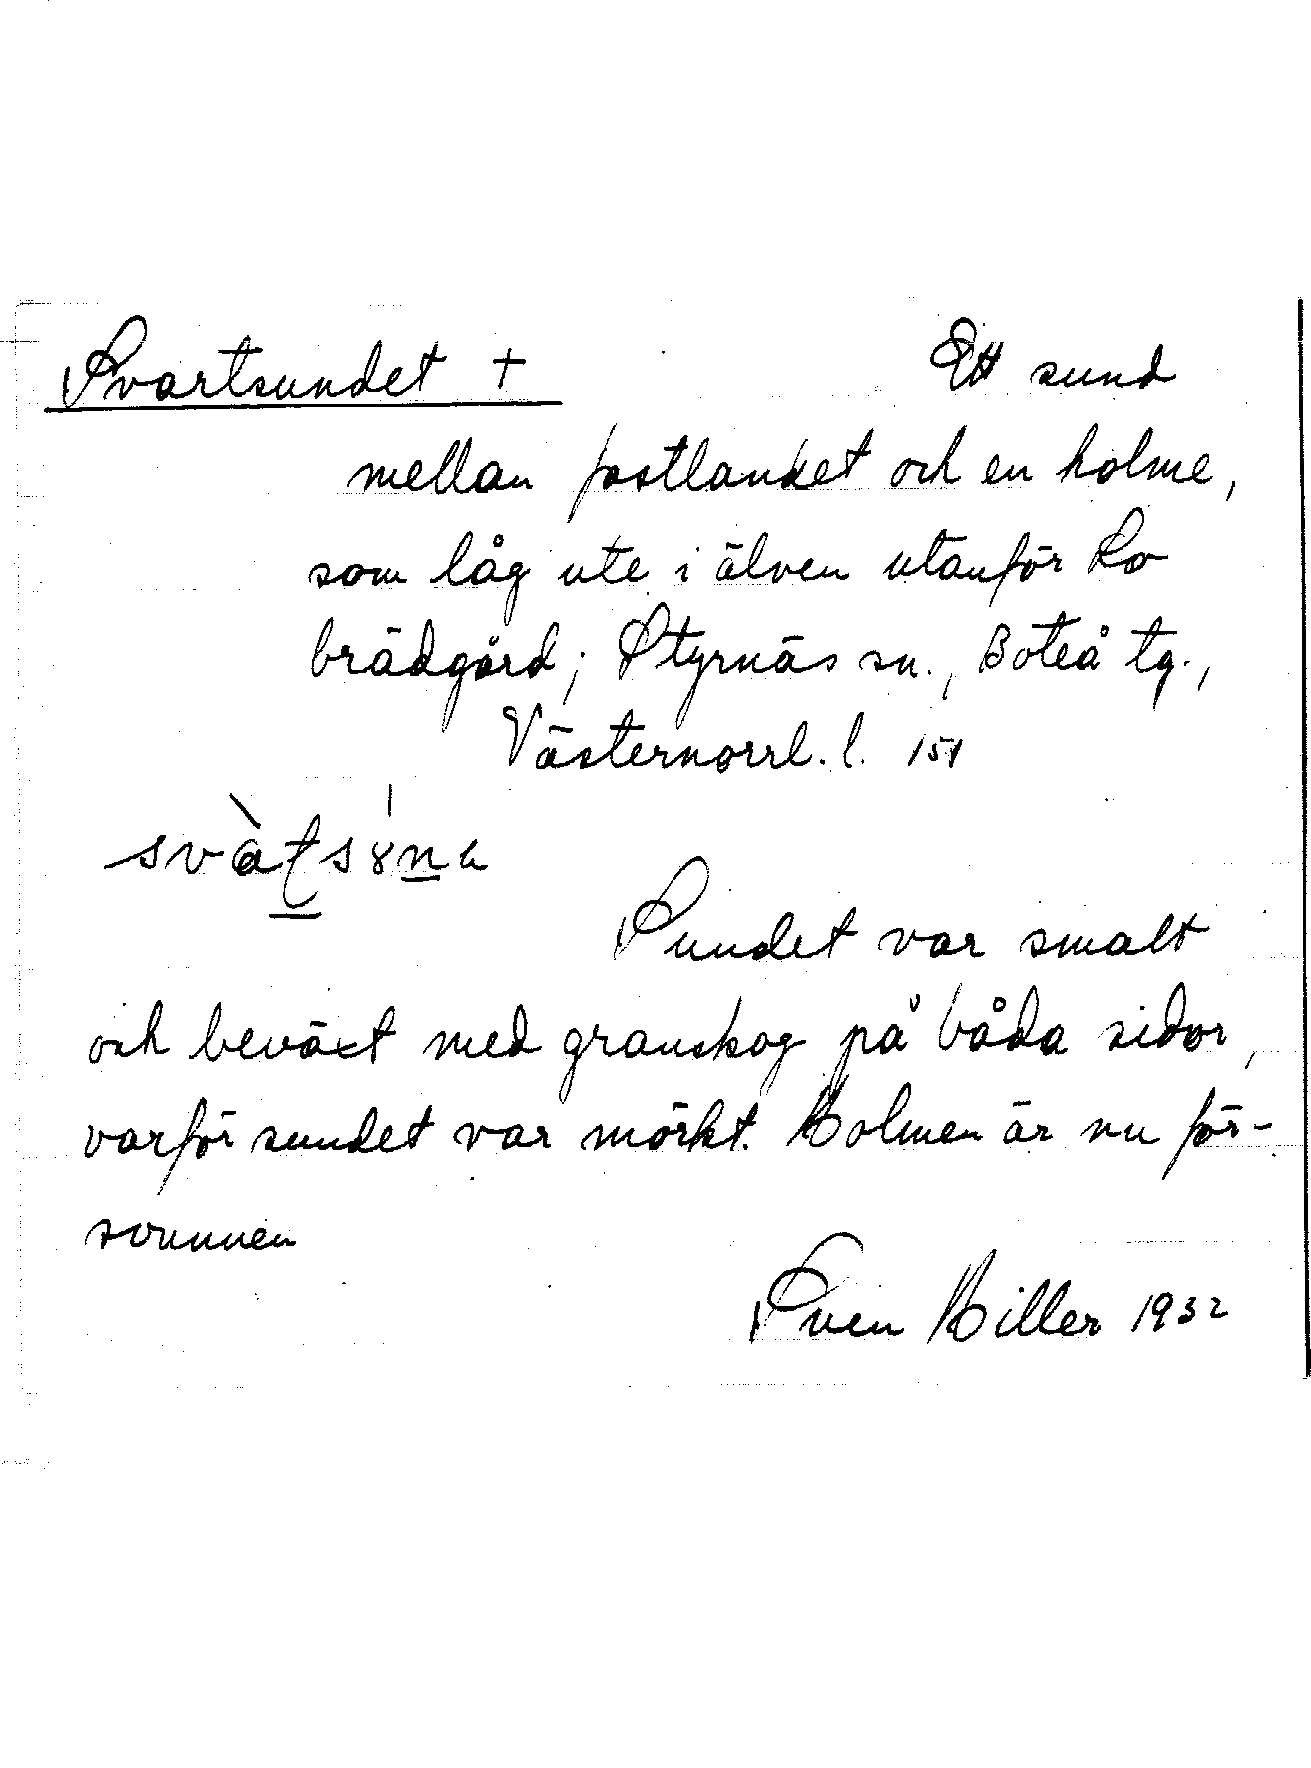 Svartsundet +
Ett sund
mellan fastlandet och en holme,
som låg ute i älven utanför Lo
brädgård; Styrnäs sn., Boteå tg.,
Västernorrl. l. 151
Sundet var smalt
och beväxt med granskog på båda sidor,
varför sundet var mörkt. Holmen är nu för-
svunnen
Sven Hiller 1932